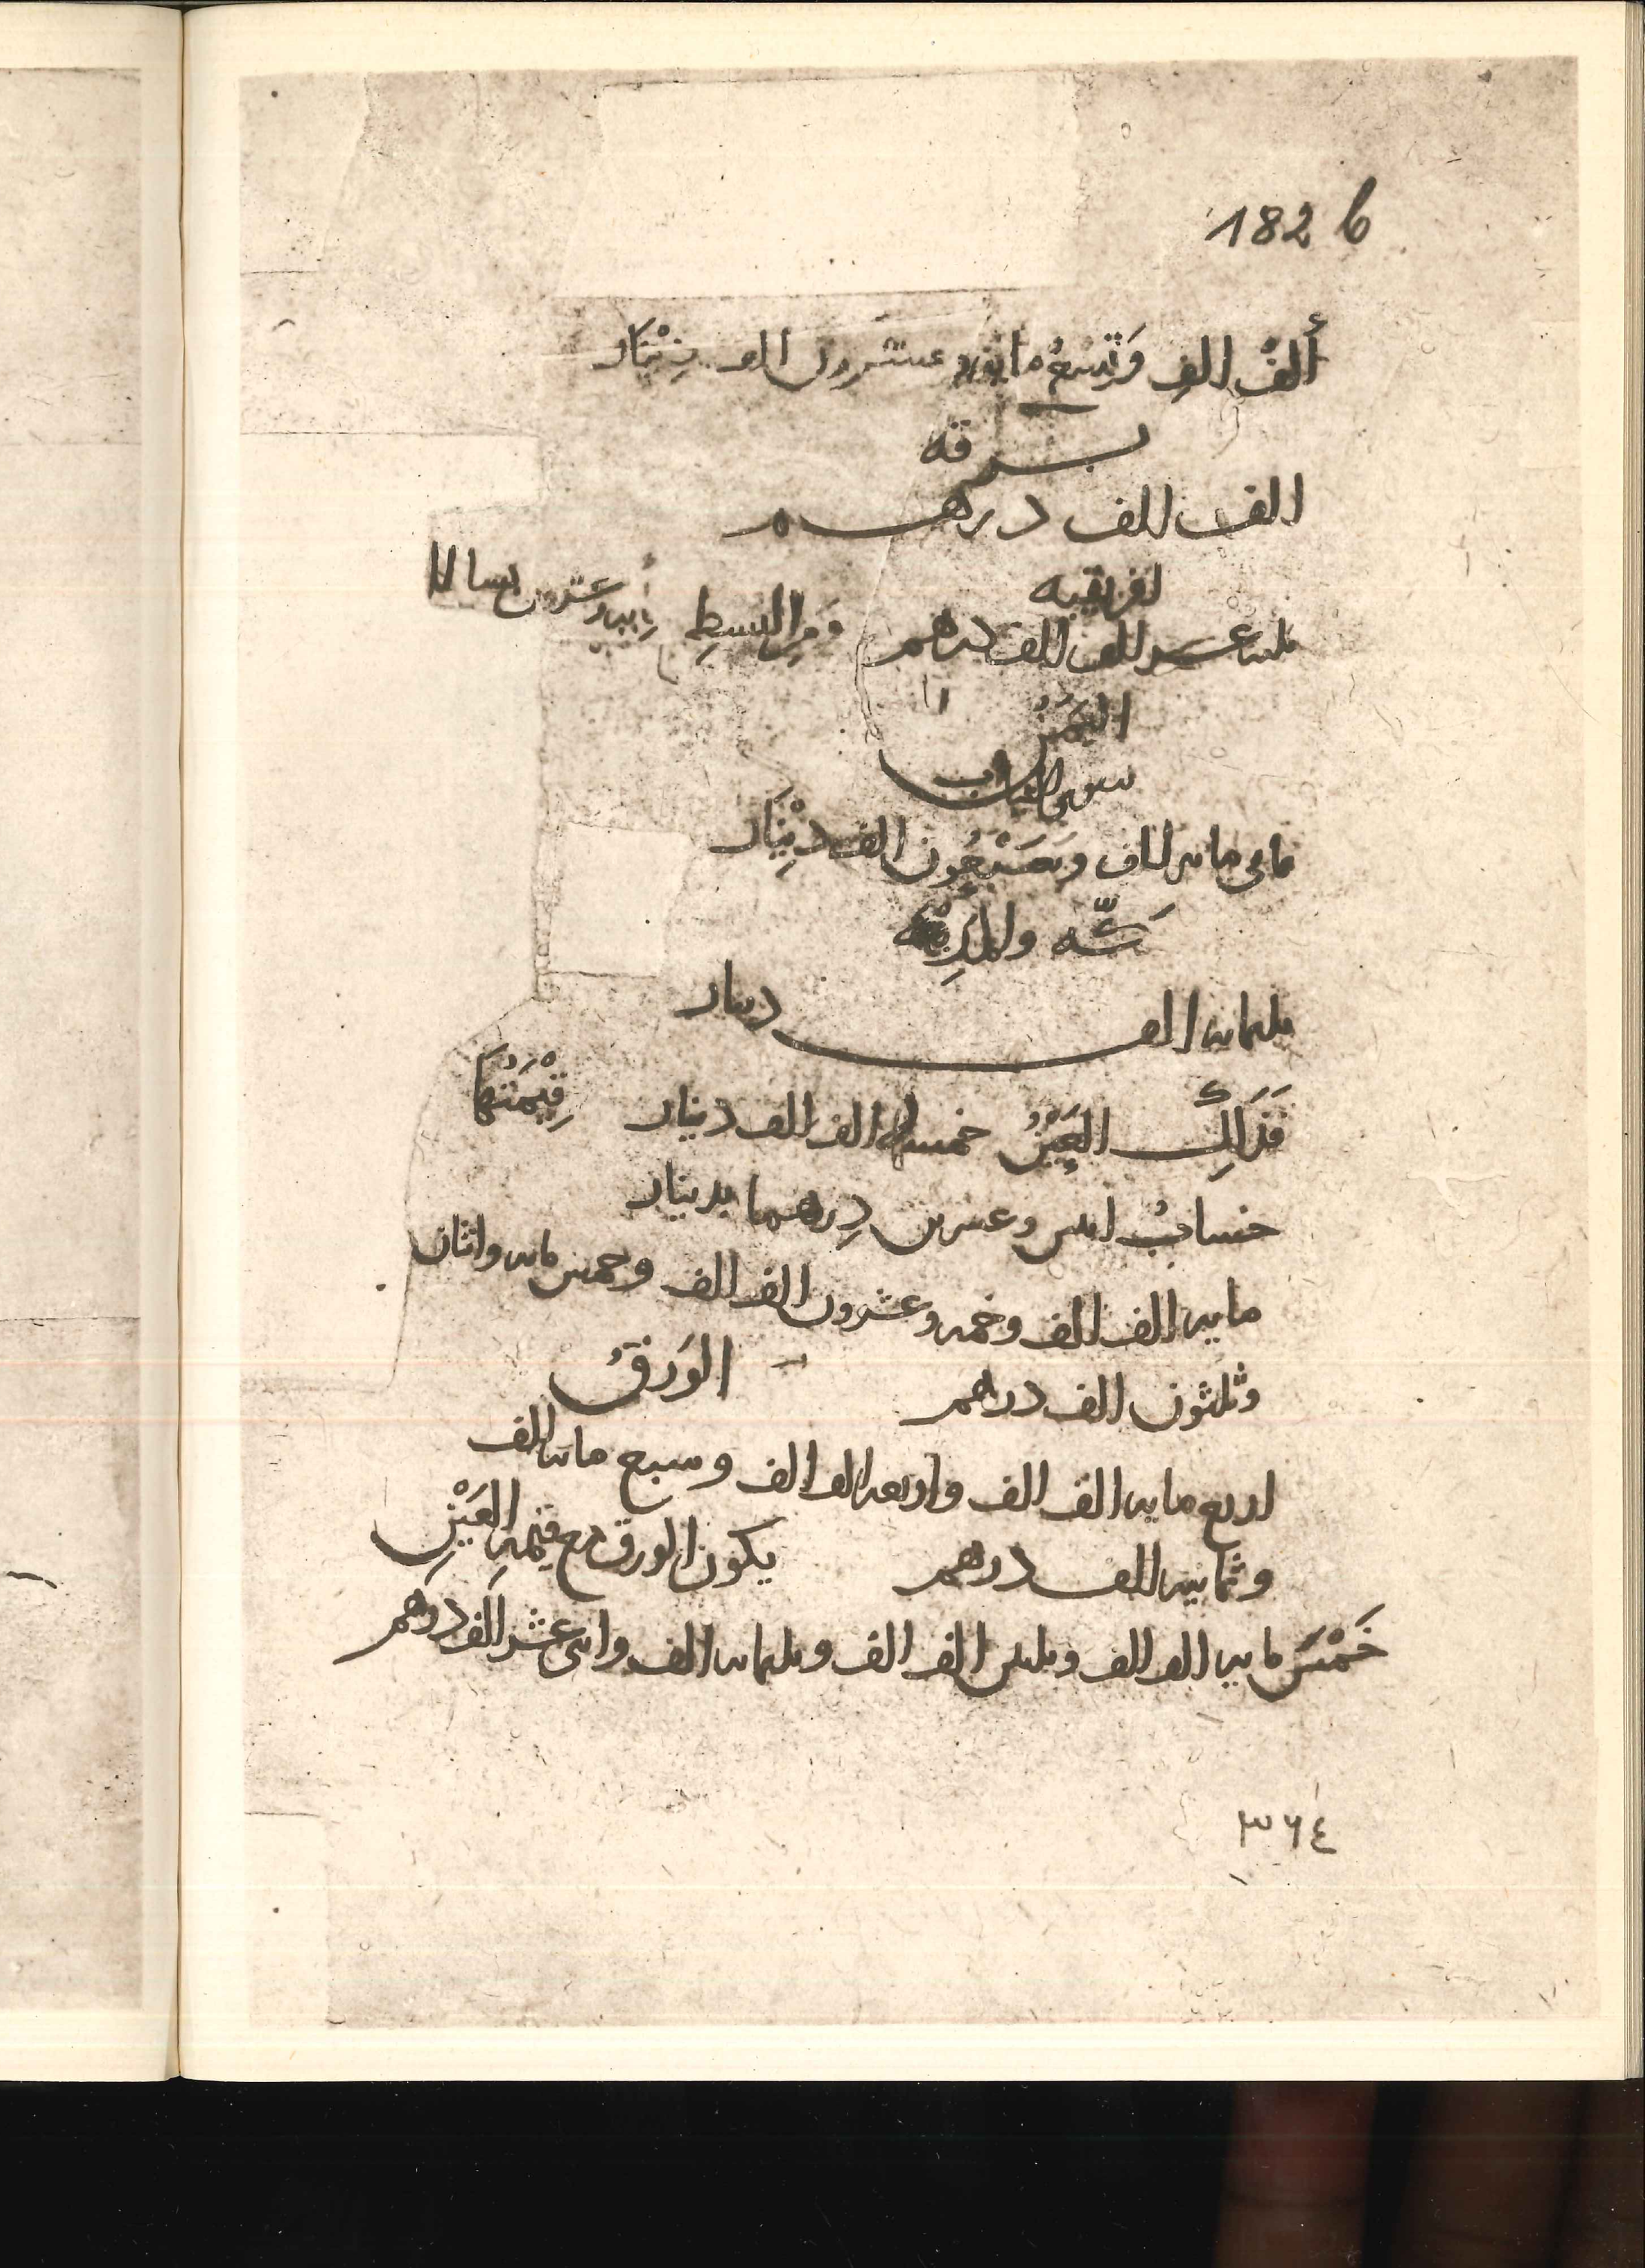 182 b
ألف الف وتسع مائة وعشرون الف دينار
برقه
الف الف درهم
افريقيه
ثلثه عشر الف الف درهم ومن البسط مايه وعشرون بساطا
اليمن
سوى الثياب
ثمانى مايه الف وسبعون الف دينار
مكّه والمدينه
ثلثمايه الف دينار
فذلك العين خمسه الف الف دينار قيمتها
حساب اثنين وعشرين درهما بدينار
مايه الف الف وخمسه وعشرون الف الف وخمس مايه واثنان
وثلثون الف درهم الورق
اربع مايه الف الف واربعه الف الف وسبع مايه الف
وثمانيه الف درهم يكون الورق مع قيمه العين
خمس مايه الف الف وثلثين الف الف وثلثمايه الف واثنى عشر الف درهم
٣٦٤